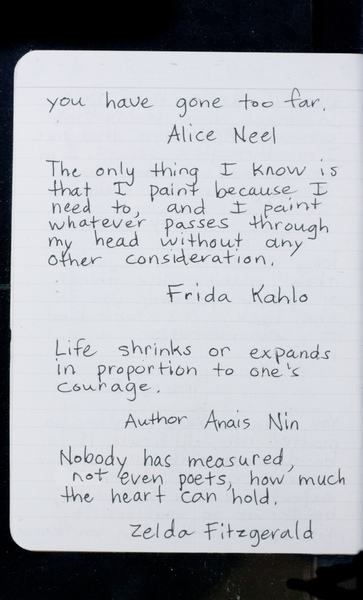 you have gone too far.
Alice Neel
The only thing I know is
that I paint because I
need to, and I paint
whatever passes through
my head without any
other consideration.
Frida Kahlo
Life shrinks or expands
in proportion to one's
courage.
Author Anais Nin
Nobody has measured,
not even poets, how much
the heart can hold.
Zelda Fitzgerald